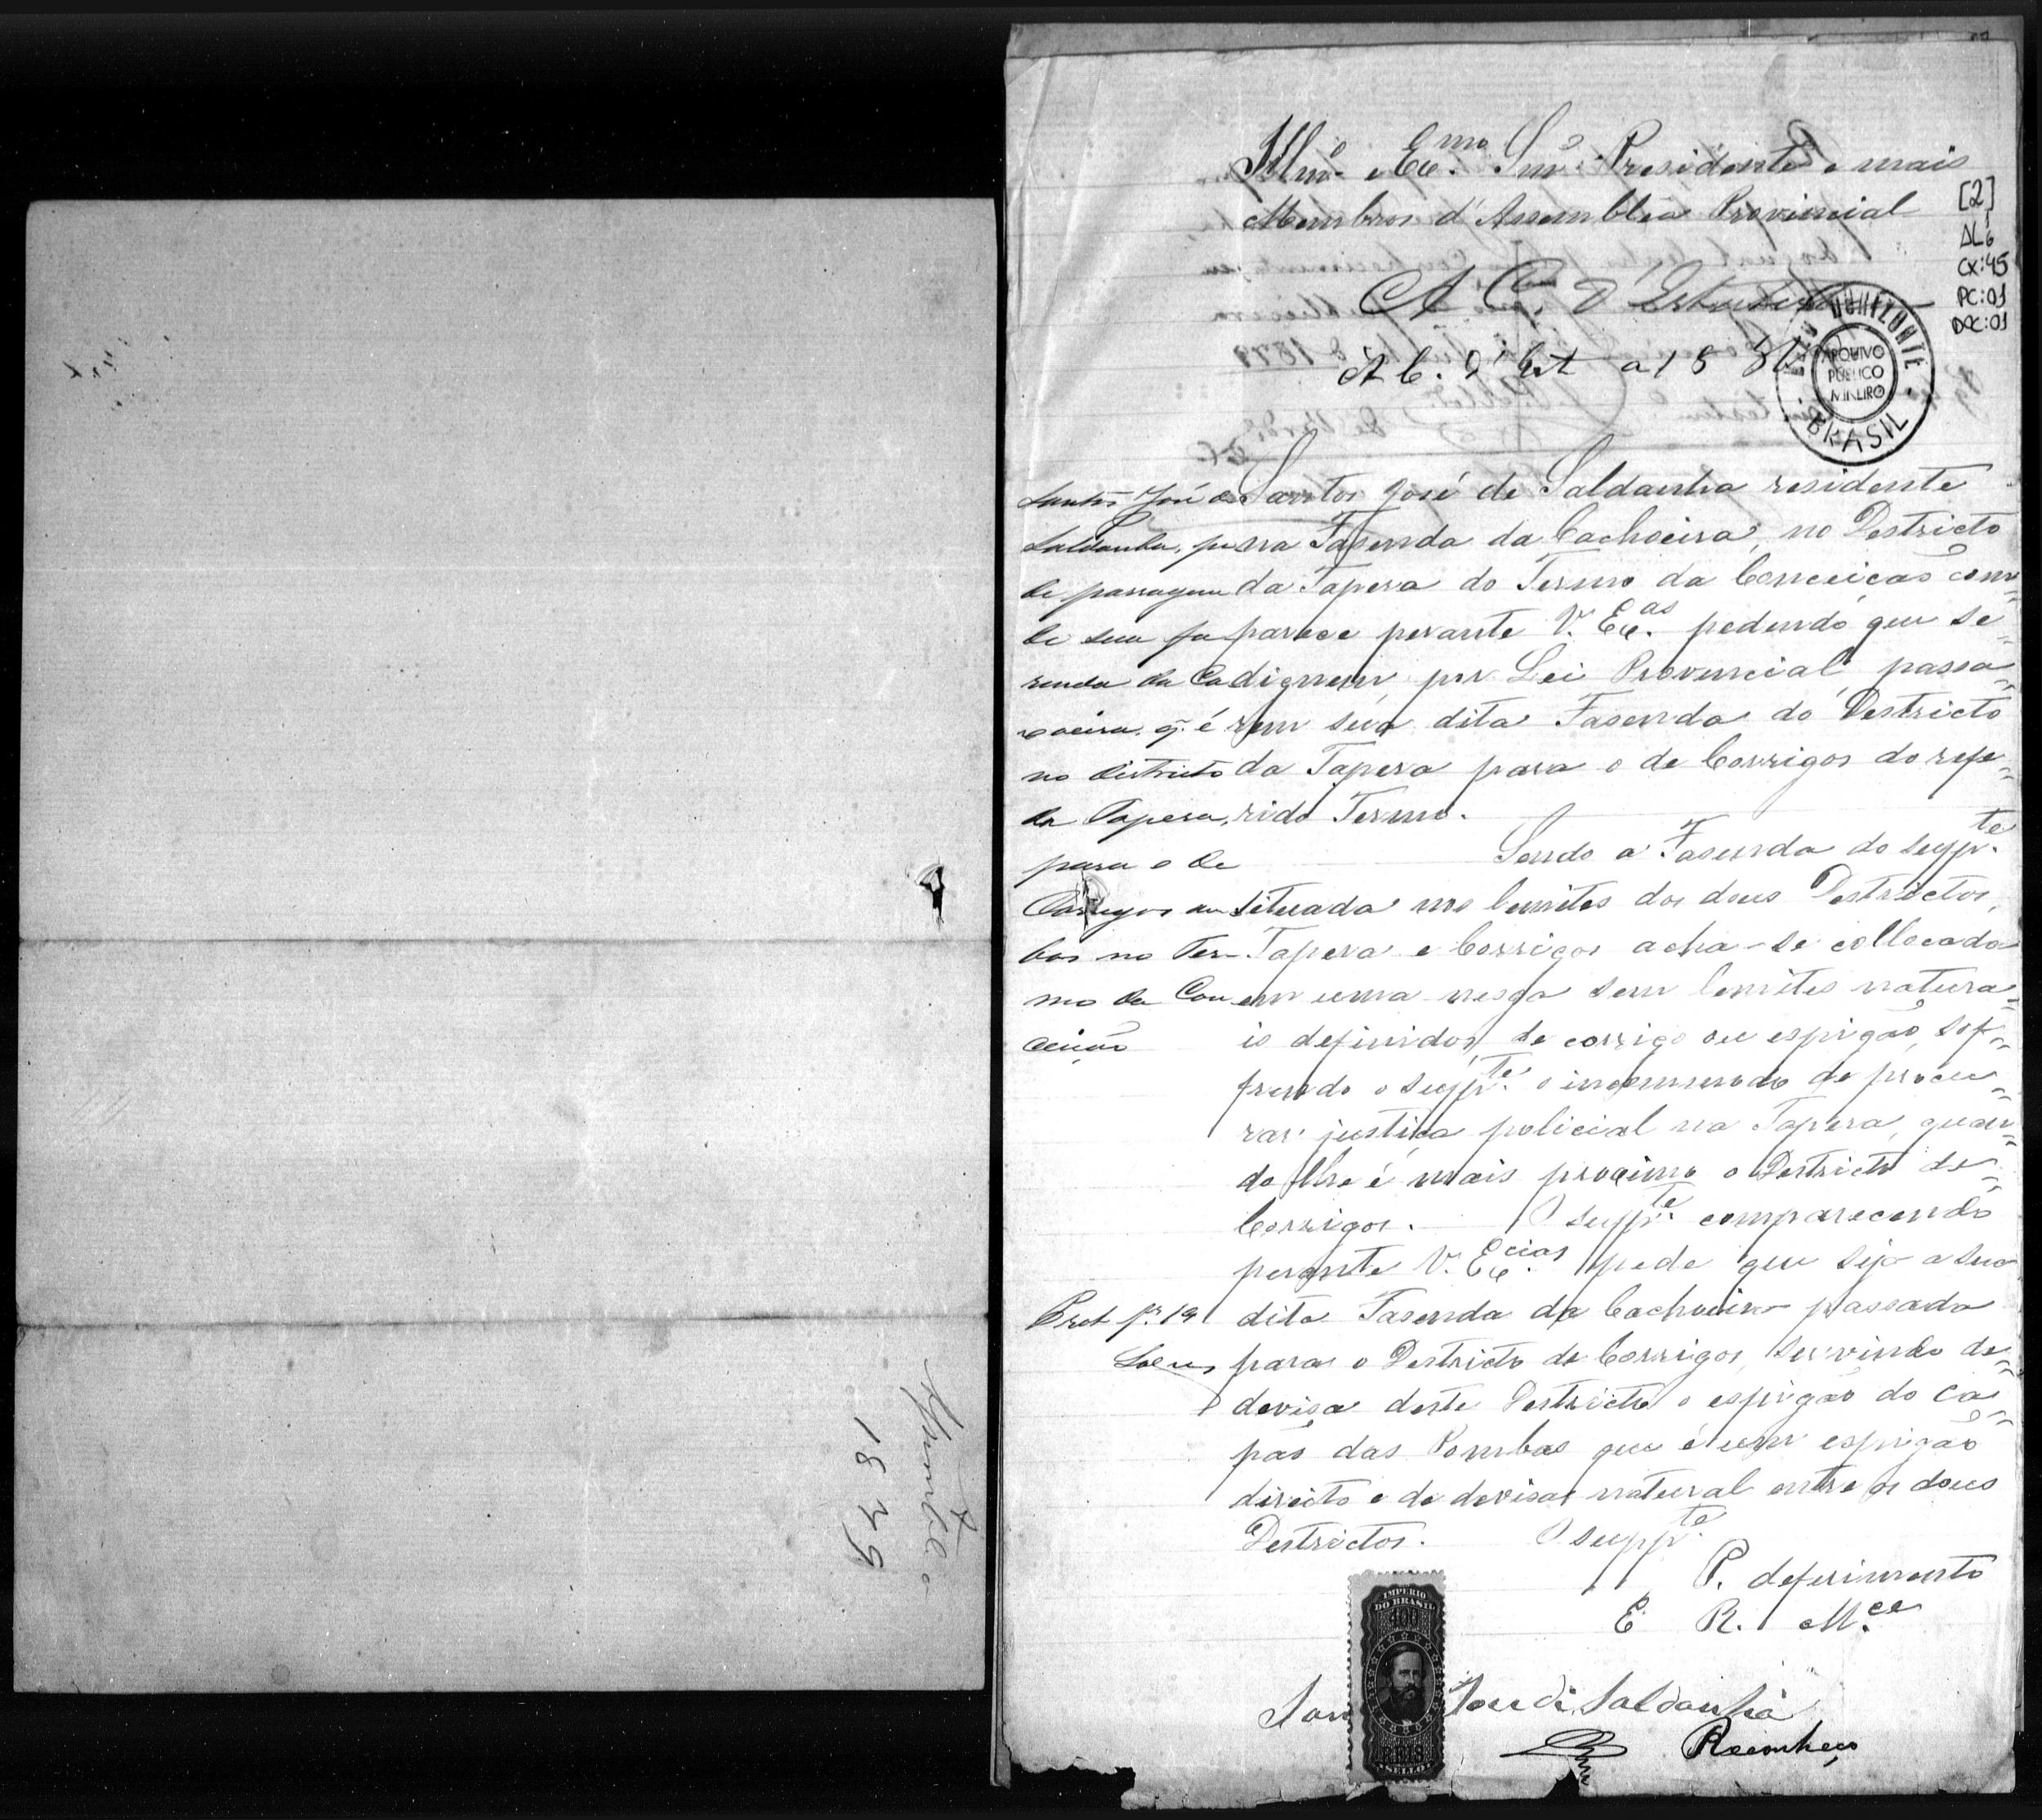 Illmº e Exmo. Snr. Presidente e mais
Membros d'Assemblea Provincial
A Cam d'Estatistica
A C. d'Est a 18
[2]
AL6
CX:45
PC:01
DOC:01
BELO HORIZONTE
ARQUIVO
PUBLICO
MINEIRO
BRASIL
Santos José de Saldanha residente
na Fasenda da Cachoeira, no Destricto
da Tapera do Termo da Conceição com=
parece perante V. Excas. pedendo que se
dignem, por Lei Provencial, passa=
rem sua dita Fasenda do Destricto
da Tapera para o de Corrigos do refe=
rido Termo.
Sendo a Fasenda do suppte.
situada nos lemites dos dous Destrictos,
Tapera e Corrigos acha-se collocada
em uma nesga sem lemites natura=
is definidos, de corrigo ou espigão, sof=
frendo o suppte. o incommodo de procu=
rar justiça policial na Tapera, quan=
do lhe é mais proximo o Destricto de
Corrigos. O suppte. comparecendo
perante V. Excias. pede que seja a sua
dita Fasenda da Cachoeira passada
para o Destricto de Corrigos, servindo de
devisa deste Destricto o espigão do Ca=
pão das Pombas que é um espigão
direito e de devisa natural entre os dous
Destrictos. O suppte.
P. deferimento
E. R. Mce.
Santos José de
Saldanha, pe
de passagem
de sua fa
senda da Ca
xoeira, q. é
no districto
da Tapera,
para o de
Corregos am
bos no Ter-
mo da Con
ceição
IMPERIO
DO BRASIL
REIS
SELLO
José de Saldanha
Reconheço
1879